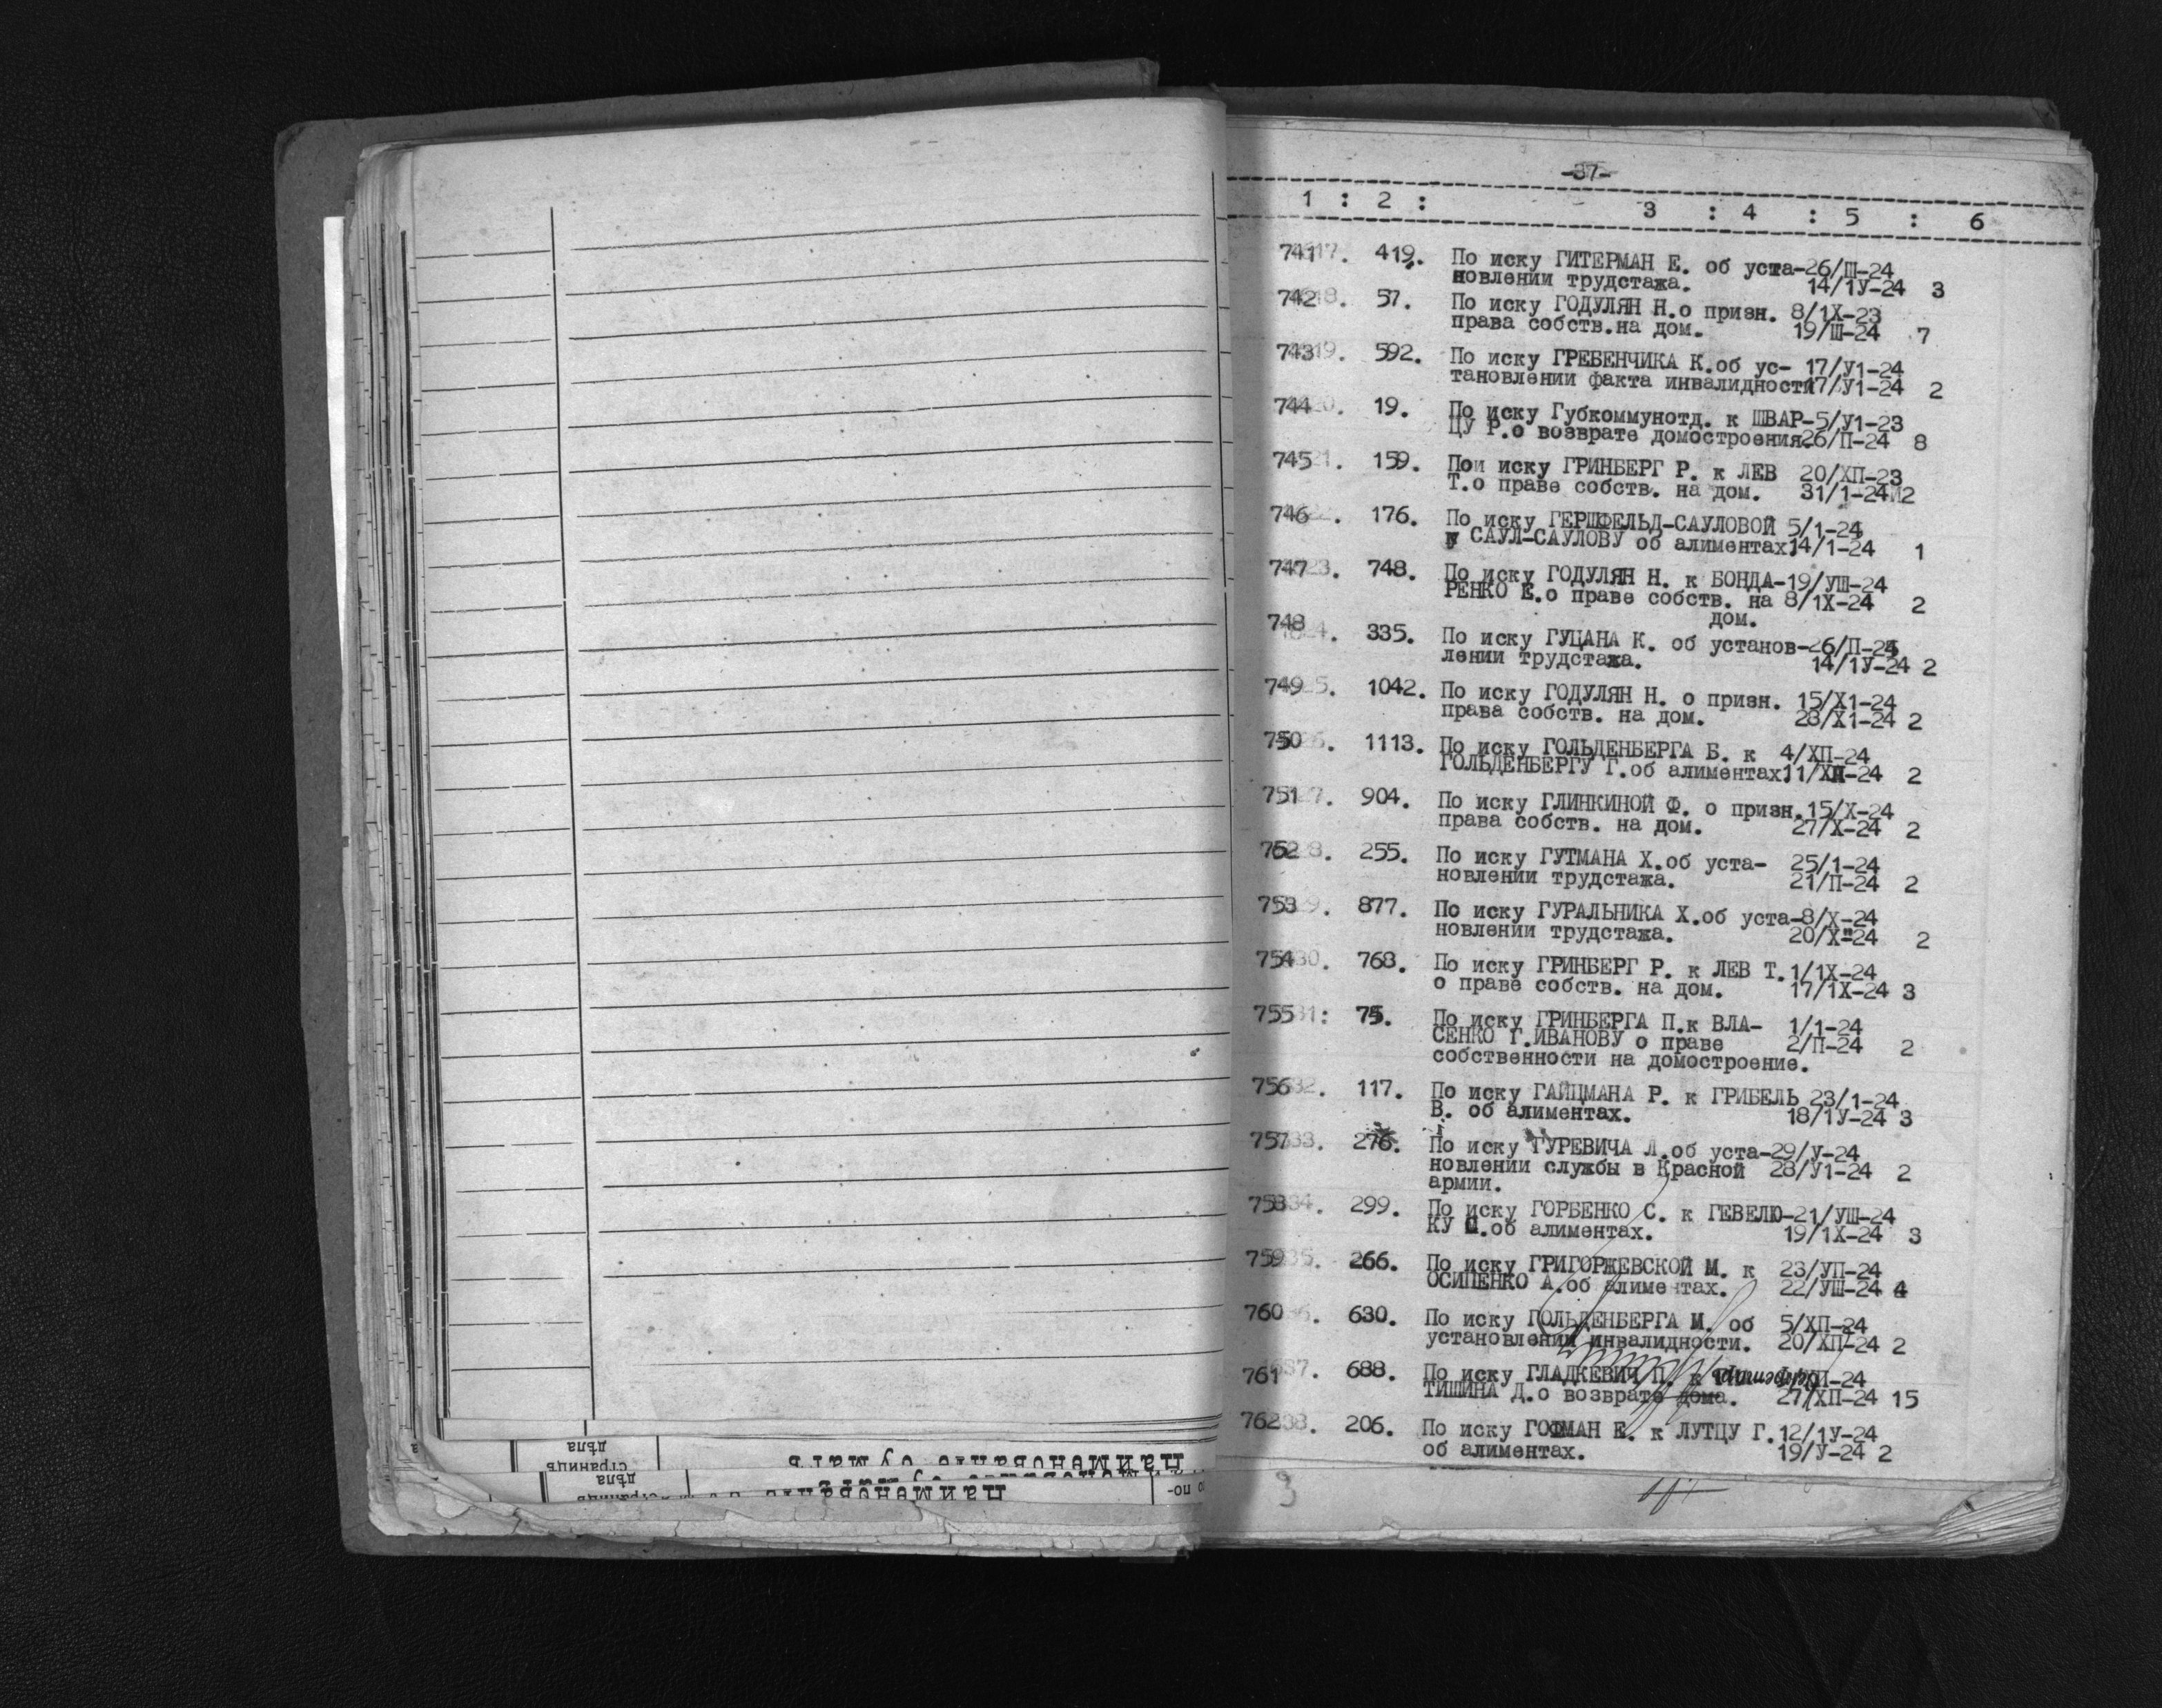 -37-
1 : 2 : 3 : 4 : 5 : 6
741. 419. По иску ГИТЕРМАН Е. об уста-26/Ш-24
новлении трудстажа. 14/1У-24 3
742. 57. По иску ГОДУЛЯН Н.о призн. 8/1Х-23
права собств.на дом. 19/Ш-24 7
743. 592. По иску ГРЕБЕНЧИКА К.об ус- 17/У1-24
тановлении факта инвалидности 17/У1-24 2
744. 19. По иску Губкоммунотд. к ШВАР-5/У1-23
ЦУ Р.о возврате домостроения.26/П-24 8
745. 159. По иску ГРИНБЕРГ Р. к ЛЕВ 20/ХП-23
Т.о праве собств. на дом. 31/1-24 2
746. 176. По иску ГЕРШФЕЛЬД-САУЛОВОЙ 5/1-24
САУЛ-САУЛОВУ об алиментах.14/1-24 1
747. 748. По иску ГОДУЛЯН Н. к БОНДА-19/УШ-24
РЕНКО Е.о праве собств. на 8/1Х-24 2
дом.
748. 335. По иску ГУЦАНА К. об установ-26/П-24
лении трудстажа. 14/1У-24 2
749. 1042. По иску ГОДУЛЯН Н. о призн. 15/Х1-24
права собств. на дом. 28/Х1-24 2
750. 1113. По иску ГОЛЬДЕНБЕРГА Б. к 4/ХП-24
ГОЛЬДЕНБЕРГУ Г.об алиментах.11/ХП-24 2
751. 904. По иску ГЛИНКИНОЙ Ф. о призн.15/Х-24
права собств. на дом. 27/Х-24 2
752. 255. По иску ГУТМАНА Х.об уста- 25/1-24
новлении трудстажа. 21/П-24 2
753. 877. По иску ГУРАЛЬНИКА Х.об уста-8/Х-24
новлении трудстажа. 20/Х-24 2
754. 768. По иску ГРИНБЕРГ Р. к ЛЕВ Т.1/1Х-24
о праве собств. на дом. 17/1Х-24 3
755: 75. По иску ГРИНБЕРГА П.к ВЛА- 1/1-24
СЕНКО Г.ИВАНОВУ о праве 2/П-24 2
собственности на домостроение.
756. 117. По иску ГАЙЦМАНА Р. к ГРИБЕЛЬ 23/1-24
В. об алиментах. 18/1У-24 3
757. 276. По иску ГУРЕВИЧА Л.об уста-29/У-24
новлении службы в Красной 28/У1-24 2
армии.
758. 299. По иску ГОРБЕНКО С. к ГЕВЕЛЮ-21/УШ-24
КУ об алиментах. 19/1Х-24 3
759. 266. По иску ГРИГОРЖЕВСКОЙ М. к 23/УП-24
ОСИПЕНКО А.об алиментах. 22/УШ-24 4
760. 630. По иску ГОЛЬДЕНБЕРГА М. об 5/ХП-24
установлении инвалидности. 20/ХП-24 2
761. 688. По иску ГЛАДКЕВИЧ П. к -24
ТИШИНА Д.о возврате дома. 27/ХП-24 15
762. 206. По иску ГОФМАН Е. к ЛУТЦУ Г.12/1У-24
об алиментах. 19/У-24 2
страницъ
дѣла
наименованіе бумагъ
дѣла
наименованіе бумагъ
3